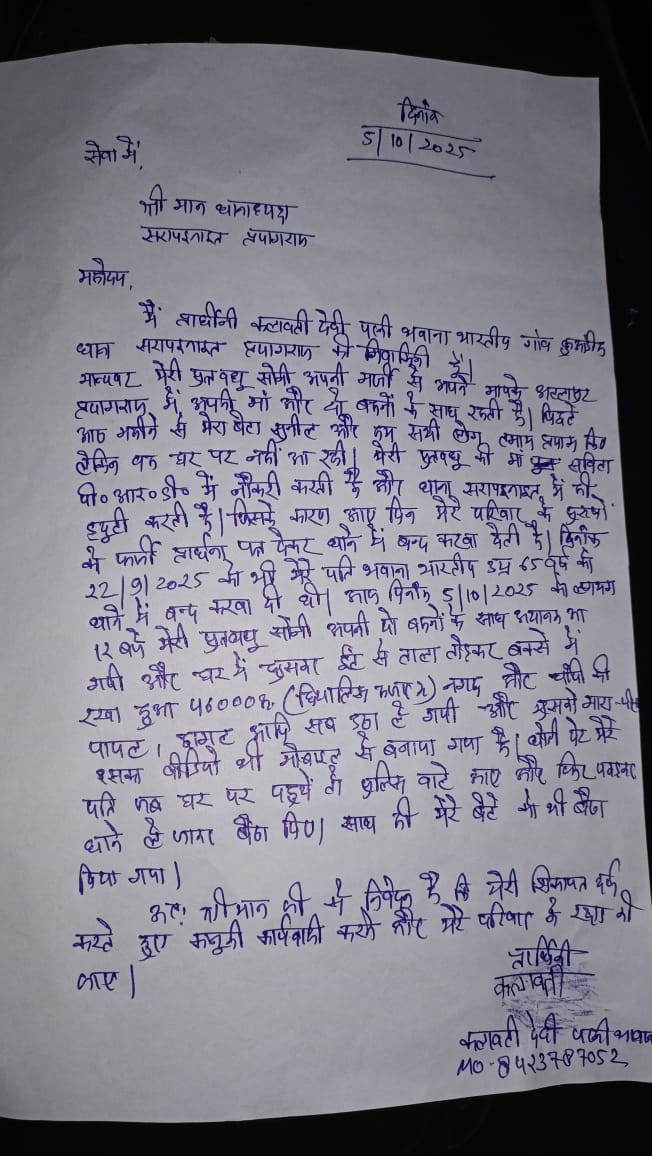 दिनाँक
5/10/2025
सेवा में,
श्री मान थानाध्यक्ष
सरायइनायत प्रयागराज
महोदय,
मैं प्रार्थीनी कलावती देवी पत्नी भवाना भारतीय गाँव
थाना सरायइनायत प्रयागराज की निवासिनी हूँ।
मान्यवर मेरी पुत्रवधु सोनी अपनी मर्जी से अपने मायके
प्रयागराज में अपनी मां और दो बच्चों के साथ रहती है। पिछले
आठ महीने से मेरा बेटा सुनील और हम सभी लोग तमाम प्रयास किए
लेकिन वह घर पर नहीं आ रही। मेरी पुत्रवधु की मां सविता
पी०आर०डी० में नौकरी करती है और थाना सरायइनायत में ही
ड्यूटी करती है। जिसके कारण आए दिन मेरे परिवार के पुरुषों
को फर्जी प्रार्थना पत्र देकर थाने में बन्द करवा देती है। दिनाँक
22/9/2025 को भी मेरे पति भवाना भारतीय उम्र 65 वर्ष को
थाने में बन्द करवा दी थी। आज दिनाँक 5/10/2025 को लगभग
12 बजे मेरी पुत्रवधु सोनी अपनी दो बच्चों के साथ अचानक आ
गयी और घर में घुसकर ईंट से ताला तोड़कर बक्से में
रखा हुआ 46000रु. (छियालिस हजार रु) नगद और चाँदी की
पायल, आदि सब उठा ले गयी और मारा-पीटा
इसका वीडियो भी मोबाइल से बनाया गया है। मेरे
पति जब घर पर पहुचें तो पुलिस वाले आए और फिर पकड़कर
थाने ले जाकर बैठा दिए। साथ ही मेरे बेटे को भी बैठा
दिया गया।
अतः श्रीमान जी से निवेदन है कि मेरी शिकायत दर्ज
करते हुए कानूनी कार्यवाही करने और मेरे परिवार के रक्षा की
जाए।
प्रार्थिनी
कलावती
कलावती देवी पत्नी भवाना
MO-8423787052